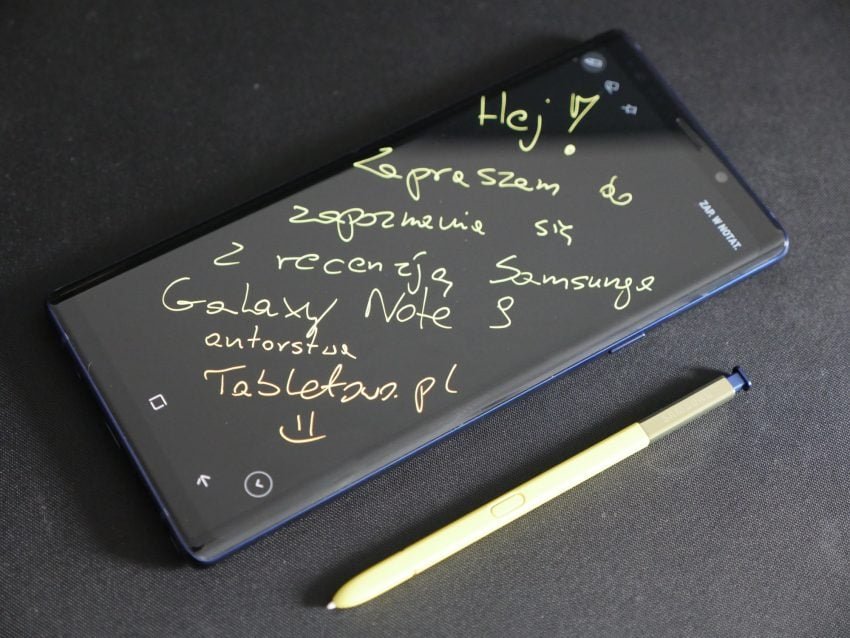 Hej!
Zapraszam do
zapoznania się
z recenzją Samsunga
Galaxy Note 9
autorstwa
Tabletowo.pl
ZAP. W NOTAT.
SAMSUNG